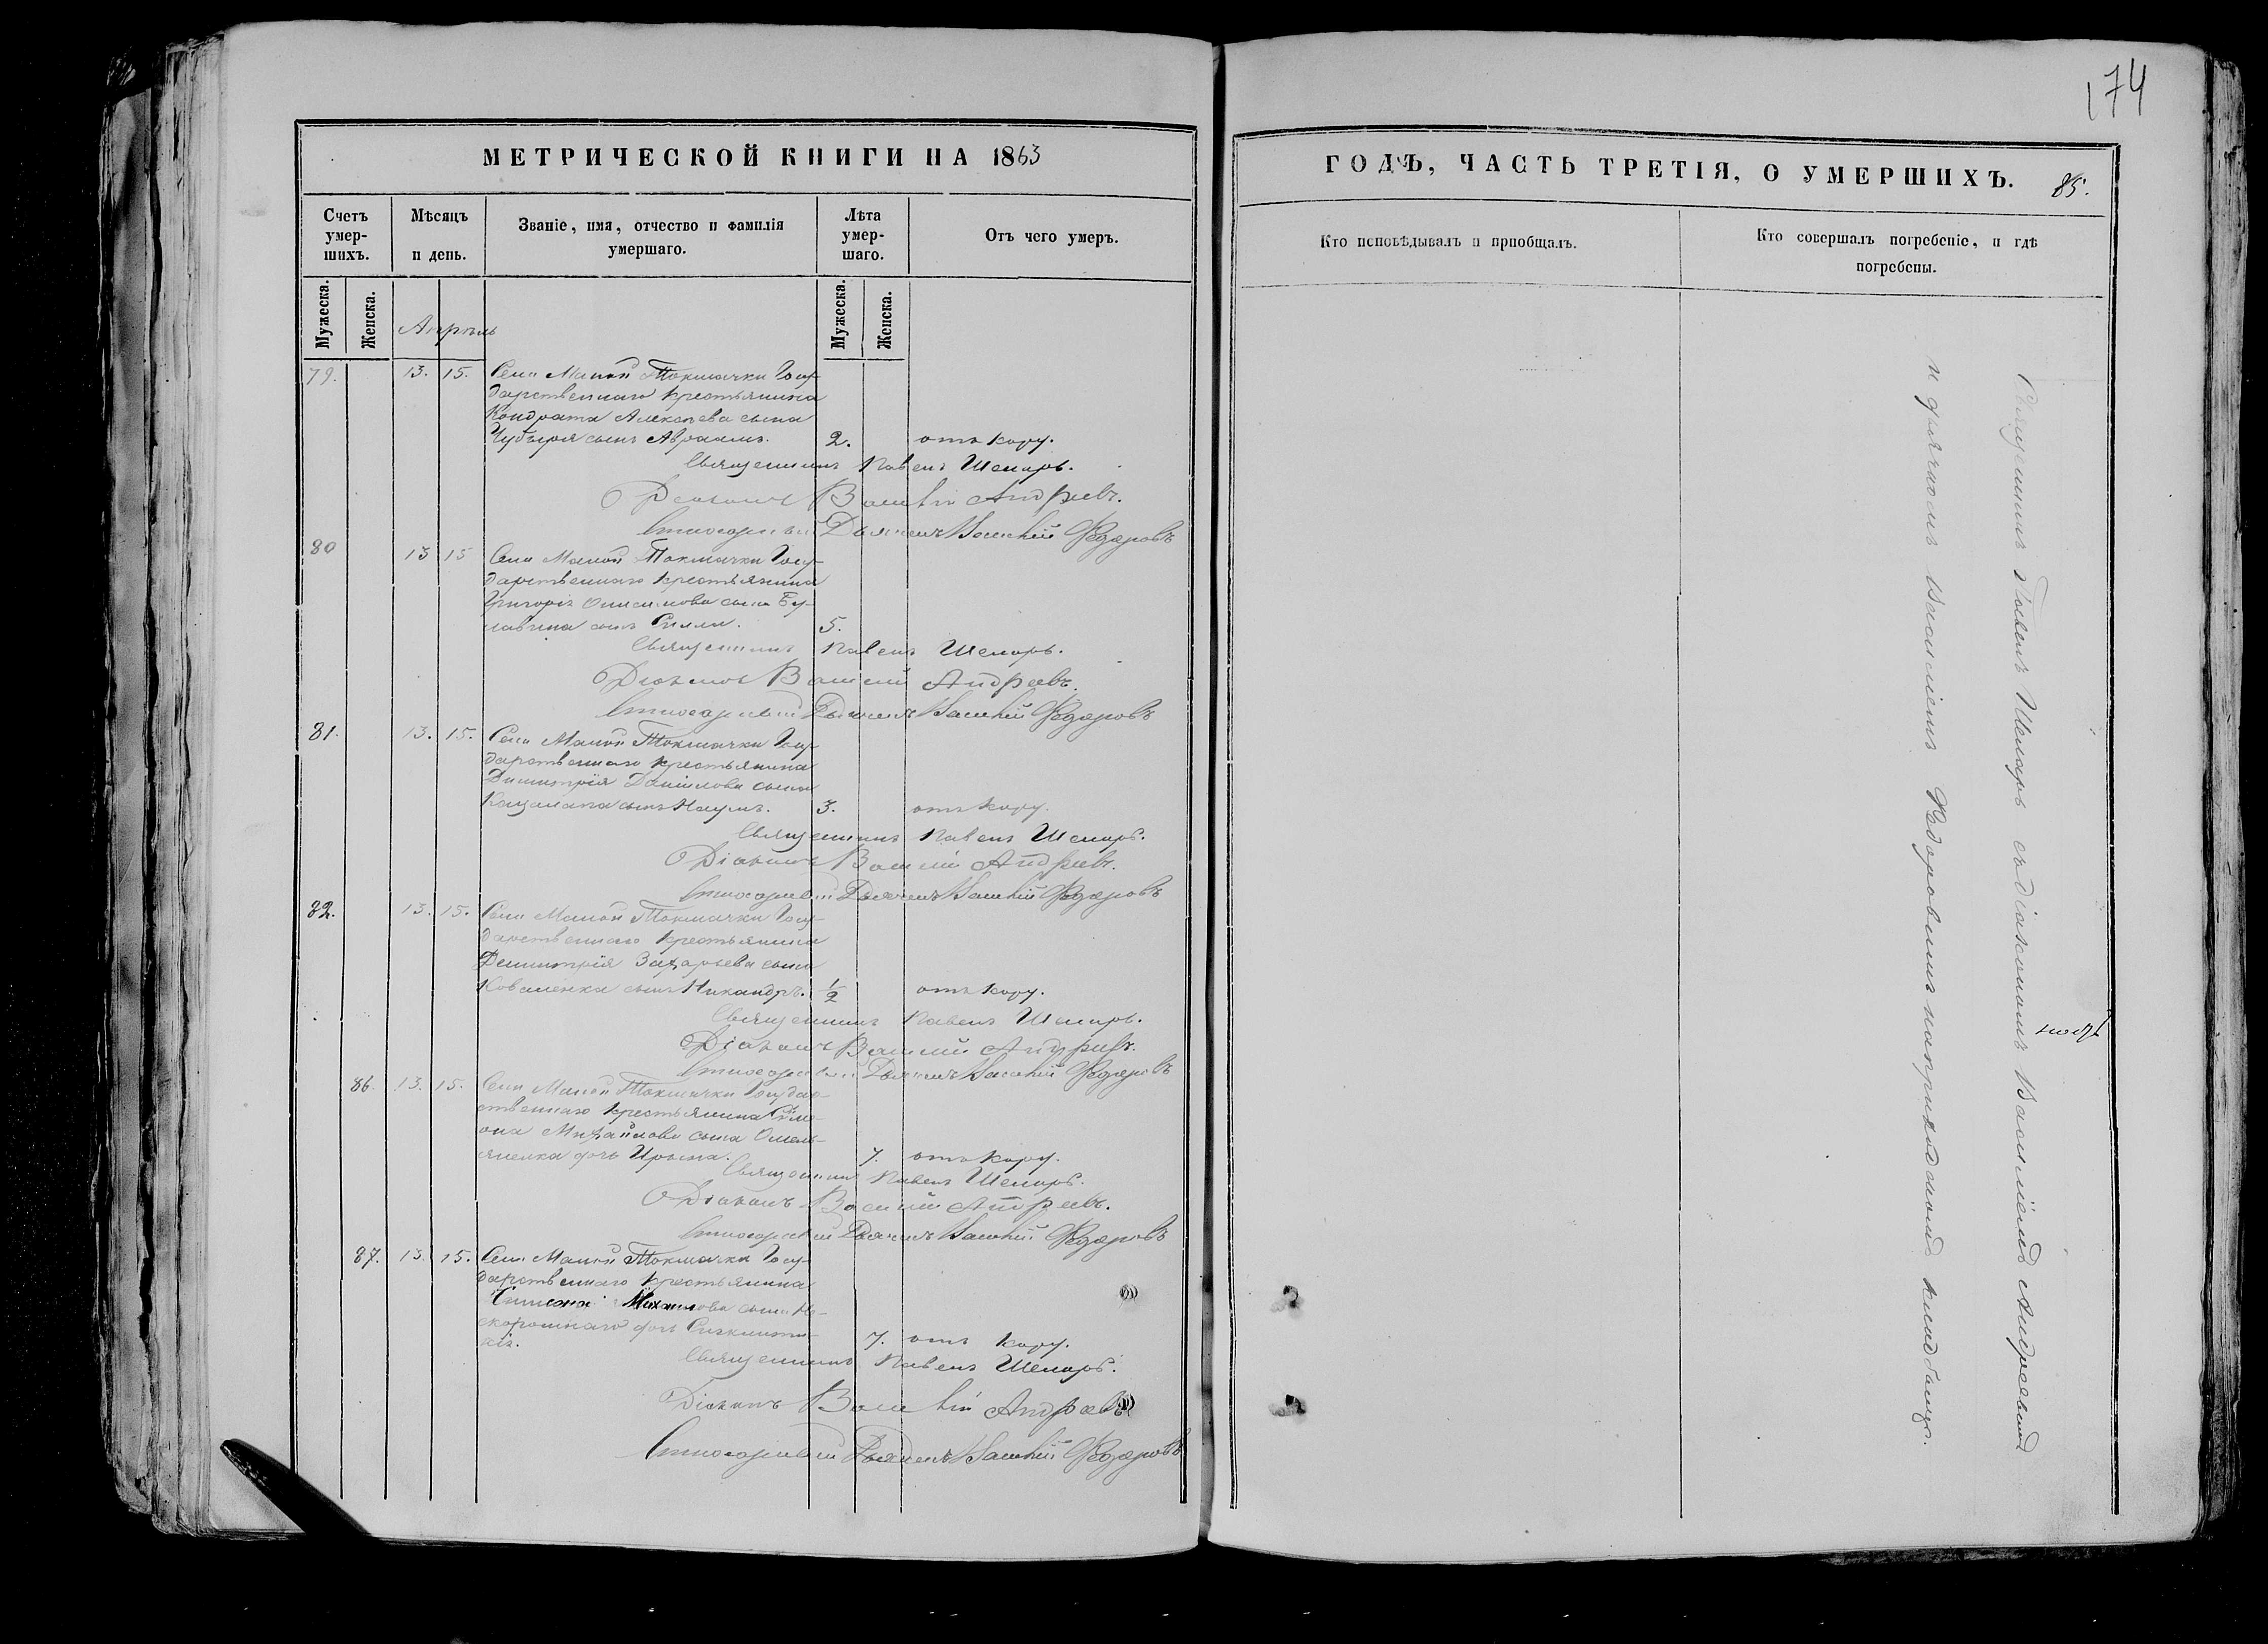 174
МЕТРИЧЕСКОЙ КНИГИ НА 1863
Счетъ умер-шихъ.
Мѣсяцъ и день.
Званіе, имя, отчество и фамилія умершаго.
Лѣта умер-шаго.
Отъ чего умеръ.
Мужеска.
Женска.
Апрѣль
Мужеска.
Женска.
79. 13. 15. Села Малой Токмачки Госу-
дарственнаго крестьянина
Кондрата Алексѣева сына
сынъ Авраамъ. 2. отъ кору.
Священникъ Павелъ Шемаръ.
Діаконъ Василій Андреевъ.
Дьячекъ Василій Федоровъ
80 13 15 Села Малой Токмачки Госу-
дарственнаго крестьянина
Григорія Онисимова сына Бу-
лавина сынъ 5.
Священникъ Павелъ Шемаръ.
Діаконъ Василій Андреевъ.
Дьячекъ Василій Федоровъ
81. 13. 15. Села Малой Токмачки Госу-
дарственнаго крестьянина
Димитрія Данилова сына
Кацапапа сынъ Наумъ. 3. отъ кору.
Священникъ Павелъ Шемаръ.
Діаконъ Василій Андреевъ.
Дьячекъ Василій Федоровъ
82. 13. 15. Села Малой Токмачки Госу-
дарственнаго крестьянина
Димитрія Захарьева сына
Коваленка сынъ Никандръ. 1/2 отъ кору.
Священникъ Павелъ Шемаръ.
Діаконъ Василій Андреевъ.
Дьячекъ Василій Федоровъ
86. 13. 15. Села Малой Токмачки Государ-
ственнаго крестьянина Симе-
она Михайлова сына Омель-
яненка дочь Ирина. 7. отъ кору.
Священникъ Павелъ Шемаръ.
Діаконъ Василій Андреевъ.
Дьячекъ Василій Федоровъ
87. 13. 15. Села Малой Токмачки Госу-
дарственнаго крестьянина
Симеона Михайлова сына Не-
скоромнаго дочь Синклити-
кія. 7. отъ кору.
Священникъ Павелъ Шемаръ.
Діаконъ Василій Андреевъ
Дьячекъ Василій Федоровъ
ГОДЪ, ЧАСТЬ ТРЕТІЯ, О УМЕРШИХЪ. 85.
Кто исповѣдывалъ и пріобщалъ.
Кто совершалъ погребеніе, и гдѣ погребены.
Священникъ Павелъ Шемаръ съ діакономъ Василіемъ Андреевымъ
и дьячкомъ Василіемъ Федоровымъ на приходскомъ кладбищѣ.